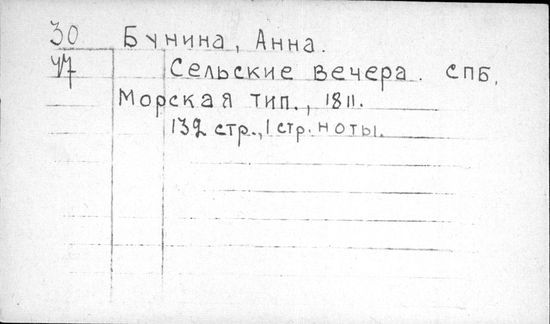 30 Бунина, Анна.
47 Сельские вечера. СПБ,
Морская тип., 1811.
132 стр., 1 стр. ноты.